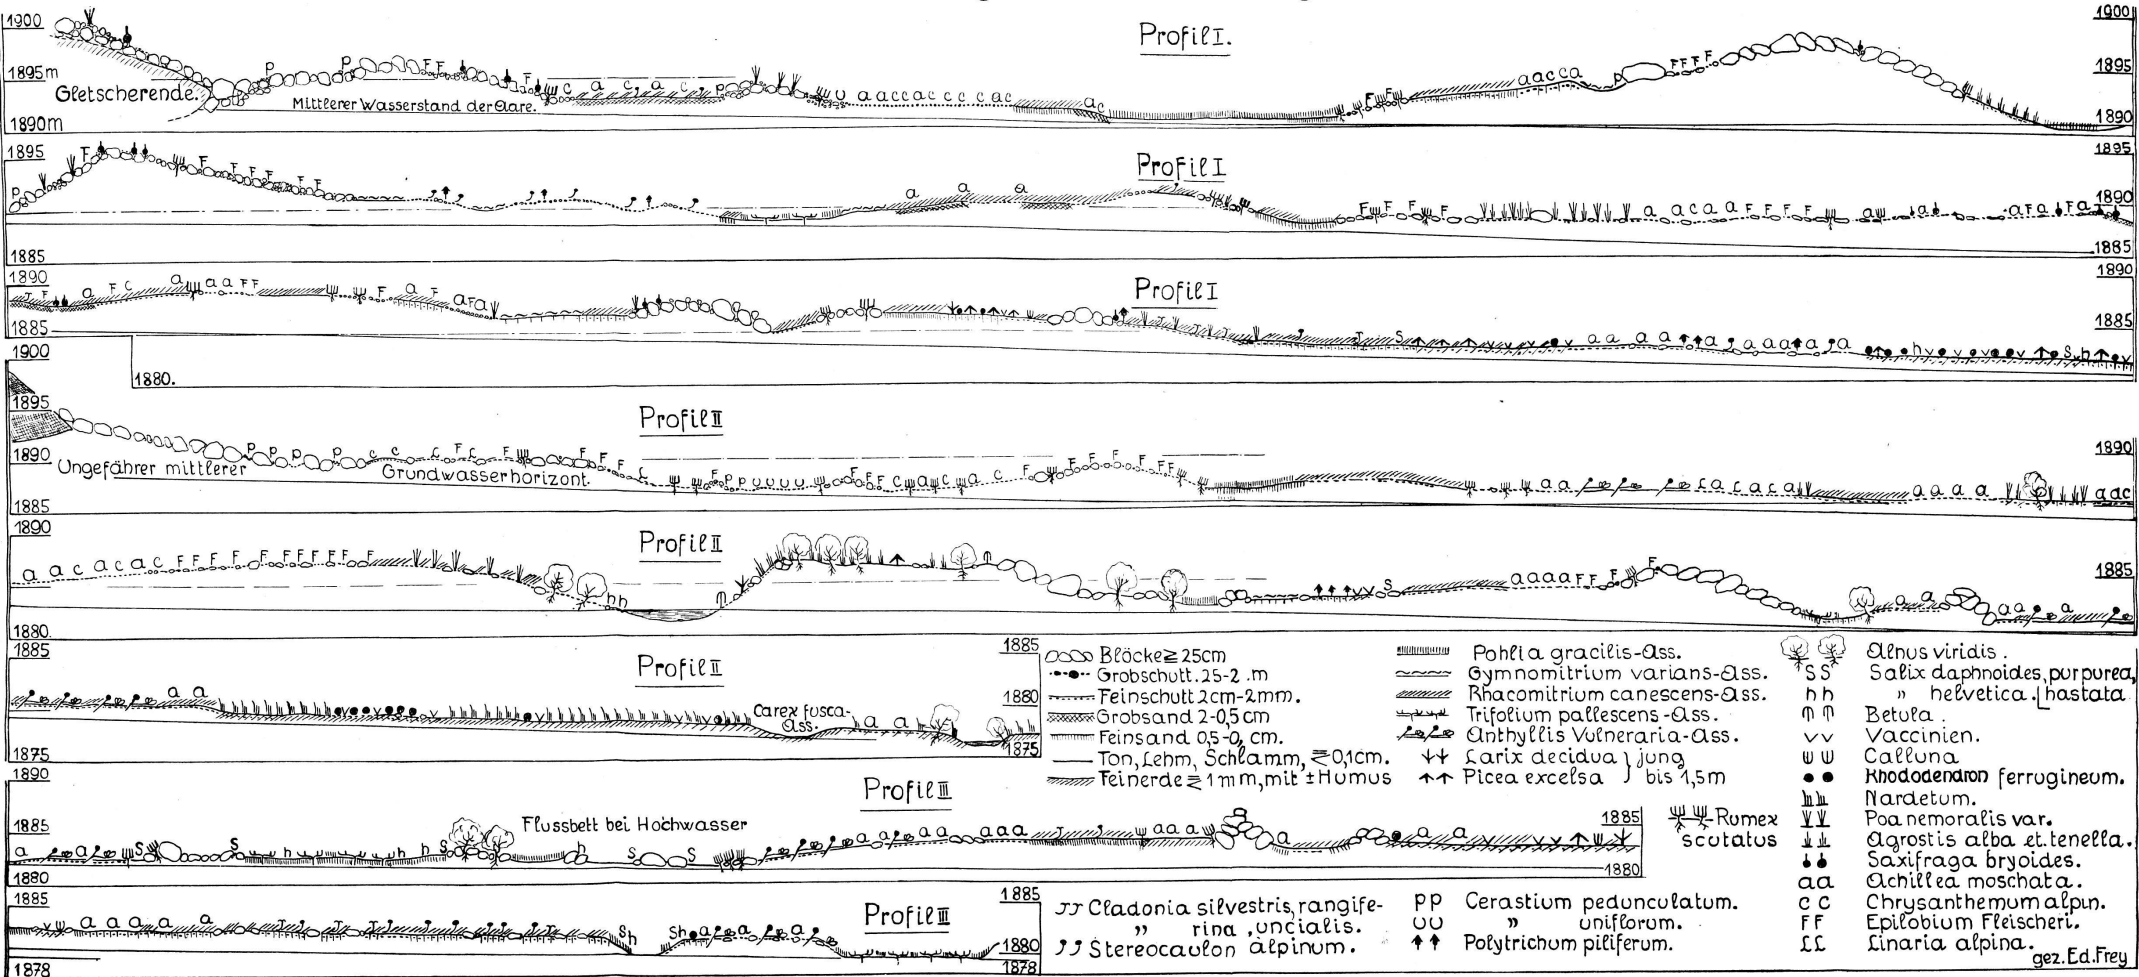 Profil I.
1900
1900
1895m
1895
Gletscherende.
Mittlerer Wasserstand der Aare.
1890m
1890
Profil I
1895
1895
1890
1885
1885
Profil I
1890
1890
1885
1885
1880.
Profil II
1900
1895
1890
1890
Ungefährer mittlerer Grundwasserhorizont.
1885
Profil II
1890
1885
1880
Profil II
1885
1885
1880
Carex fusca-
Ass.
1875
1875
Profil III
1890
1885
1885
Flussbett bei Hochwasser
1880
1880
Profil III
1885
1885
1880
1878
1878
Blöcke ≧ 25cm
Grobschutt. 25-2 .m
Feinschutt 2cm-2mm.
Grobsand 2-0,5 cm
Feinsand 0,5-0, cm.
Ton, Lehm, Schlamm, ≤ 0,1cm.
Feinerde ≧ 1mm, mit ± Humus
Pohlia gracilis-Ass.
Gymnomitrium varians-Ass.
Rhacomitrium canescens-Ass.
Trifolium pallescens-Ass.
Anthyllis Vulneraria-Ass.
Larix decidua } jung
Picea excelsa } bis 1,5m
Alnus viridis.
SS Salix daphnoides, purpurea,
hh " helvetica. [hastata
Betula.
vv Vaccinien.
Calluna
Rhododendron ferrugineum.
Nardetum.
Rumex scutatus
Poa nemoralis var.
Agrostis alba et. tenella.
Saxifraga bryoides.
aa Achillea moschata.
cc Chrysanthemum alpin.
FF Epilobium Fleischeri.
LL Linaria alpina.
JJ Cladonia silvestris, rangife-
" rina, uncialis.
,, Stereocaulon alpinum.
pp Cerastium pedunculatum.
UU " uniflorum.
Polytrichum piliferum.
gez. Ed. Frey